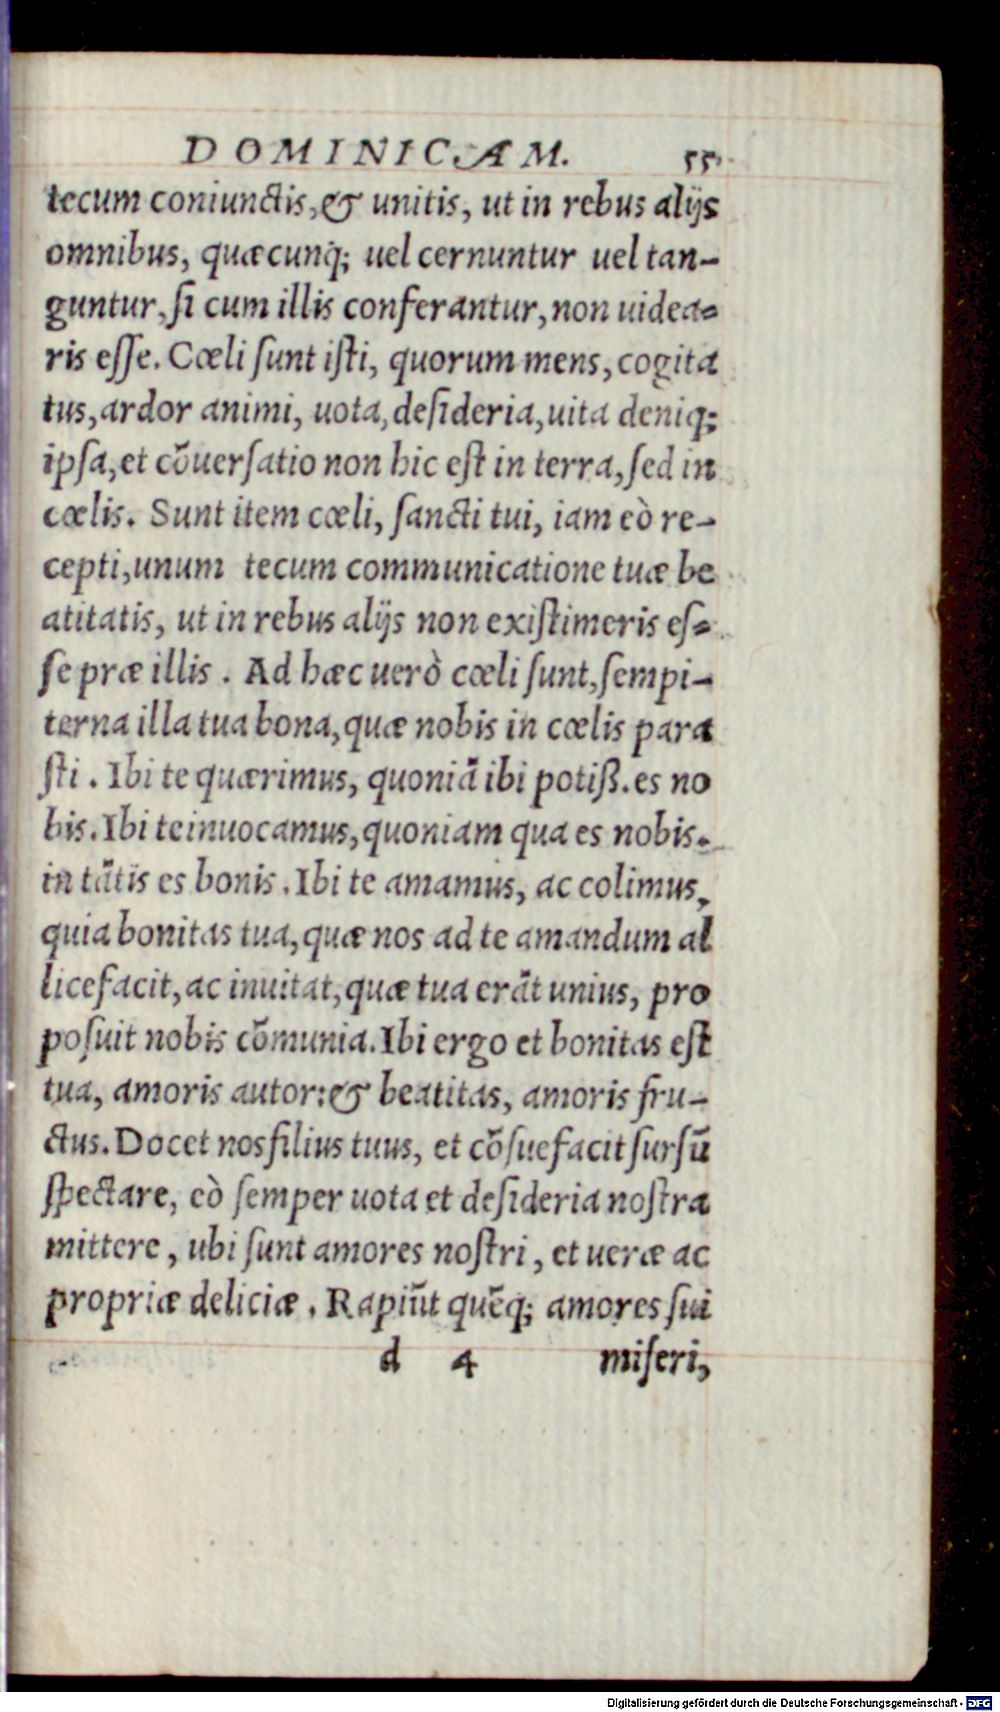 DOMINICAM. 55
tecum coniunctis, & unitis, ut in rebus alijs
omnibus, quæcunq; uel cernuntur uel tan-
guntur, ſi cum illis conferantur, non uidea-
ris eſſe. Cœli ſunt iſti, quorum mens, cogita
tus, ardor animi, uota, deſideria, uita deniq;
ipſa, et cõuerſatio non hic eſt in terra, ſed in
cœlis. Sunt item cœli, ſancti tui, iam eò re-
cepti, unum tecum communicatione tuæ be
atitatis, ut in rebus alijs non exiſtimeris eſ-
ſe præ illis. Ad hæc uerò cœli ſunt, ſempi-
terna illa tua bona, quæ nobis in cœlis para
ſti. Ibi te quærimus, quoniã ibi potiß. es no
bis. Ibi te inuocamus, quoniam qua es nobis.
in tãtis es bonis. Ibi te amamus, ac colimus,
quia bonitas tua, quæ nos ad te amandum al
licefacit, ac inuitat, quæ tua erãt unius, pro
poſuit nobis cõmunia. Ibi ergo et bonitas eſt
tua, amoris autor: & beatitas, amoris fru-
ctus. Docet nos filius tuus, et cõſuefacit ſurſũ
ſpectare, eò ſemper uota et deſideria noſtra
mittere, ubi ſunt amores noſtri, et ueræ ac
propriæ deliciæ. Rapiũt quẽq; amores ſui
d 4 miſeri,
Digitalisierung gefördert durch die Deutsche Forschungsgemeinschaft - DFG